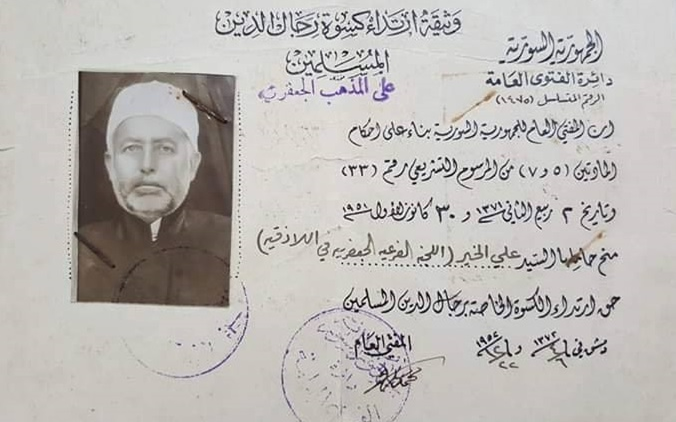 وثيقة ارتداء كسوة رجال الدين
المسلمين
على المذهب الجعفري
الجمهورية السورية
دائرة الفتوى العامة
الرقم المتسلسل (١٤٧٥)
ان المفتي العام للجمهورية السورية بناء على احكام
المادتين (٥ و ٧) من المرسوم التشريعي رقم (٣٣)
وتاريخ ٢ ربيع الثاني ١٣٧١ و ٣٠ كانون الاول ١٩٥١
منح حاملها السيد علي الخير (اللجنه الفرعيه الجعفريه في اللاذقيه)
حق ارتداء الكسوة الخاصة برجال الدين المسلمين
دمشق في ١٣٧٢ و ١٩٥٢
المفتي العام